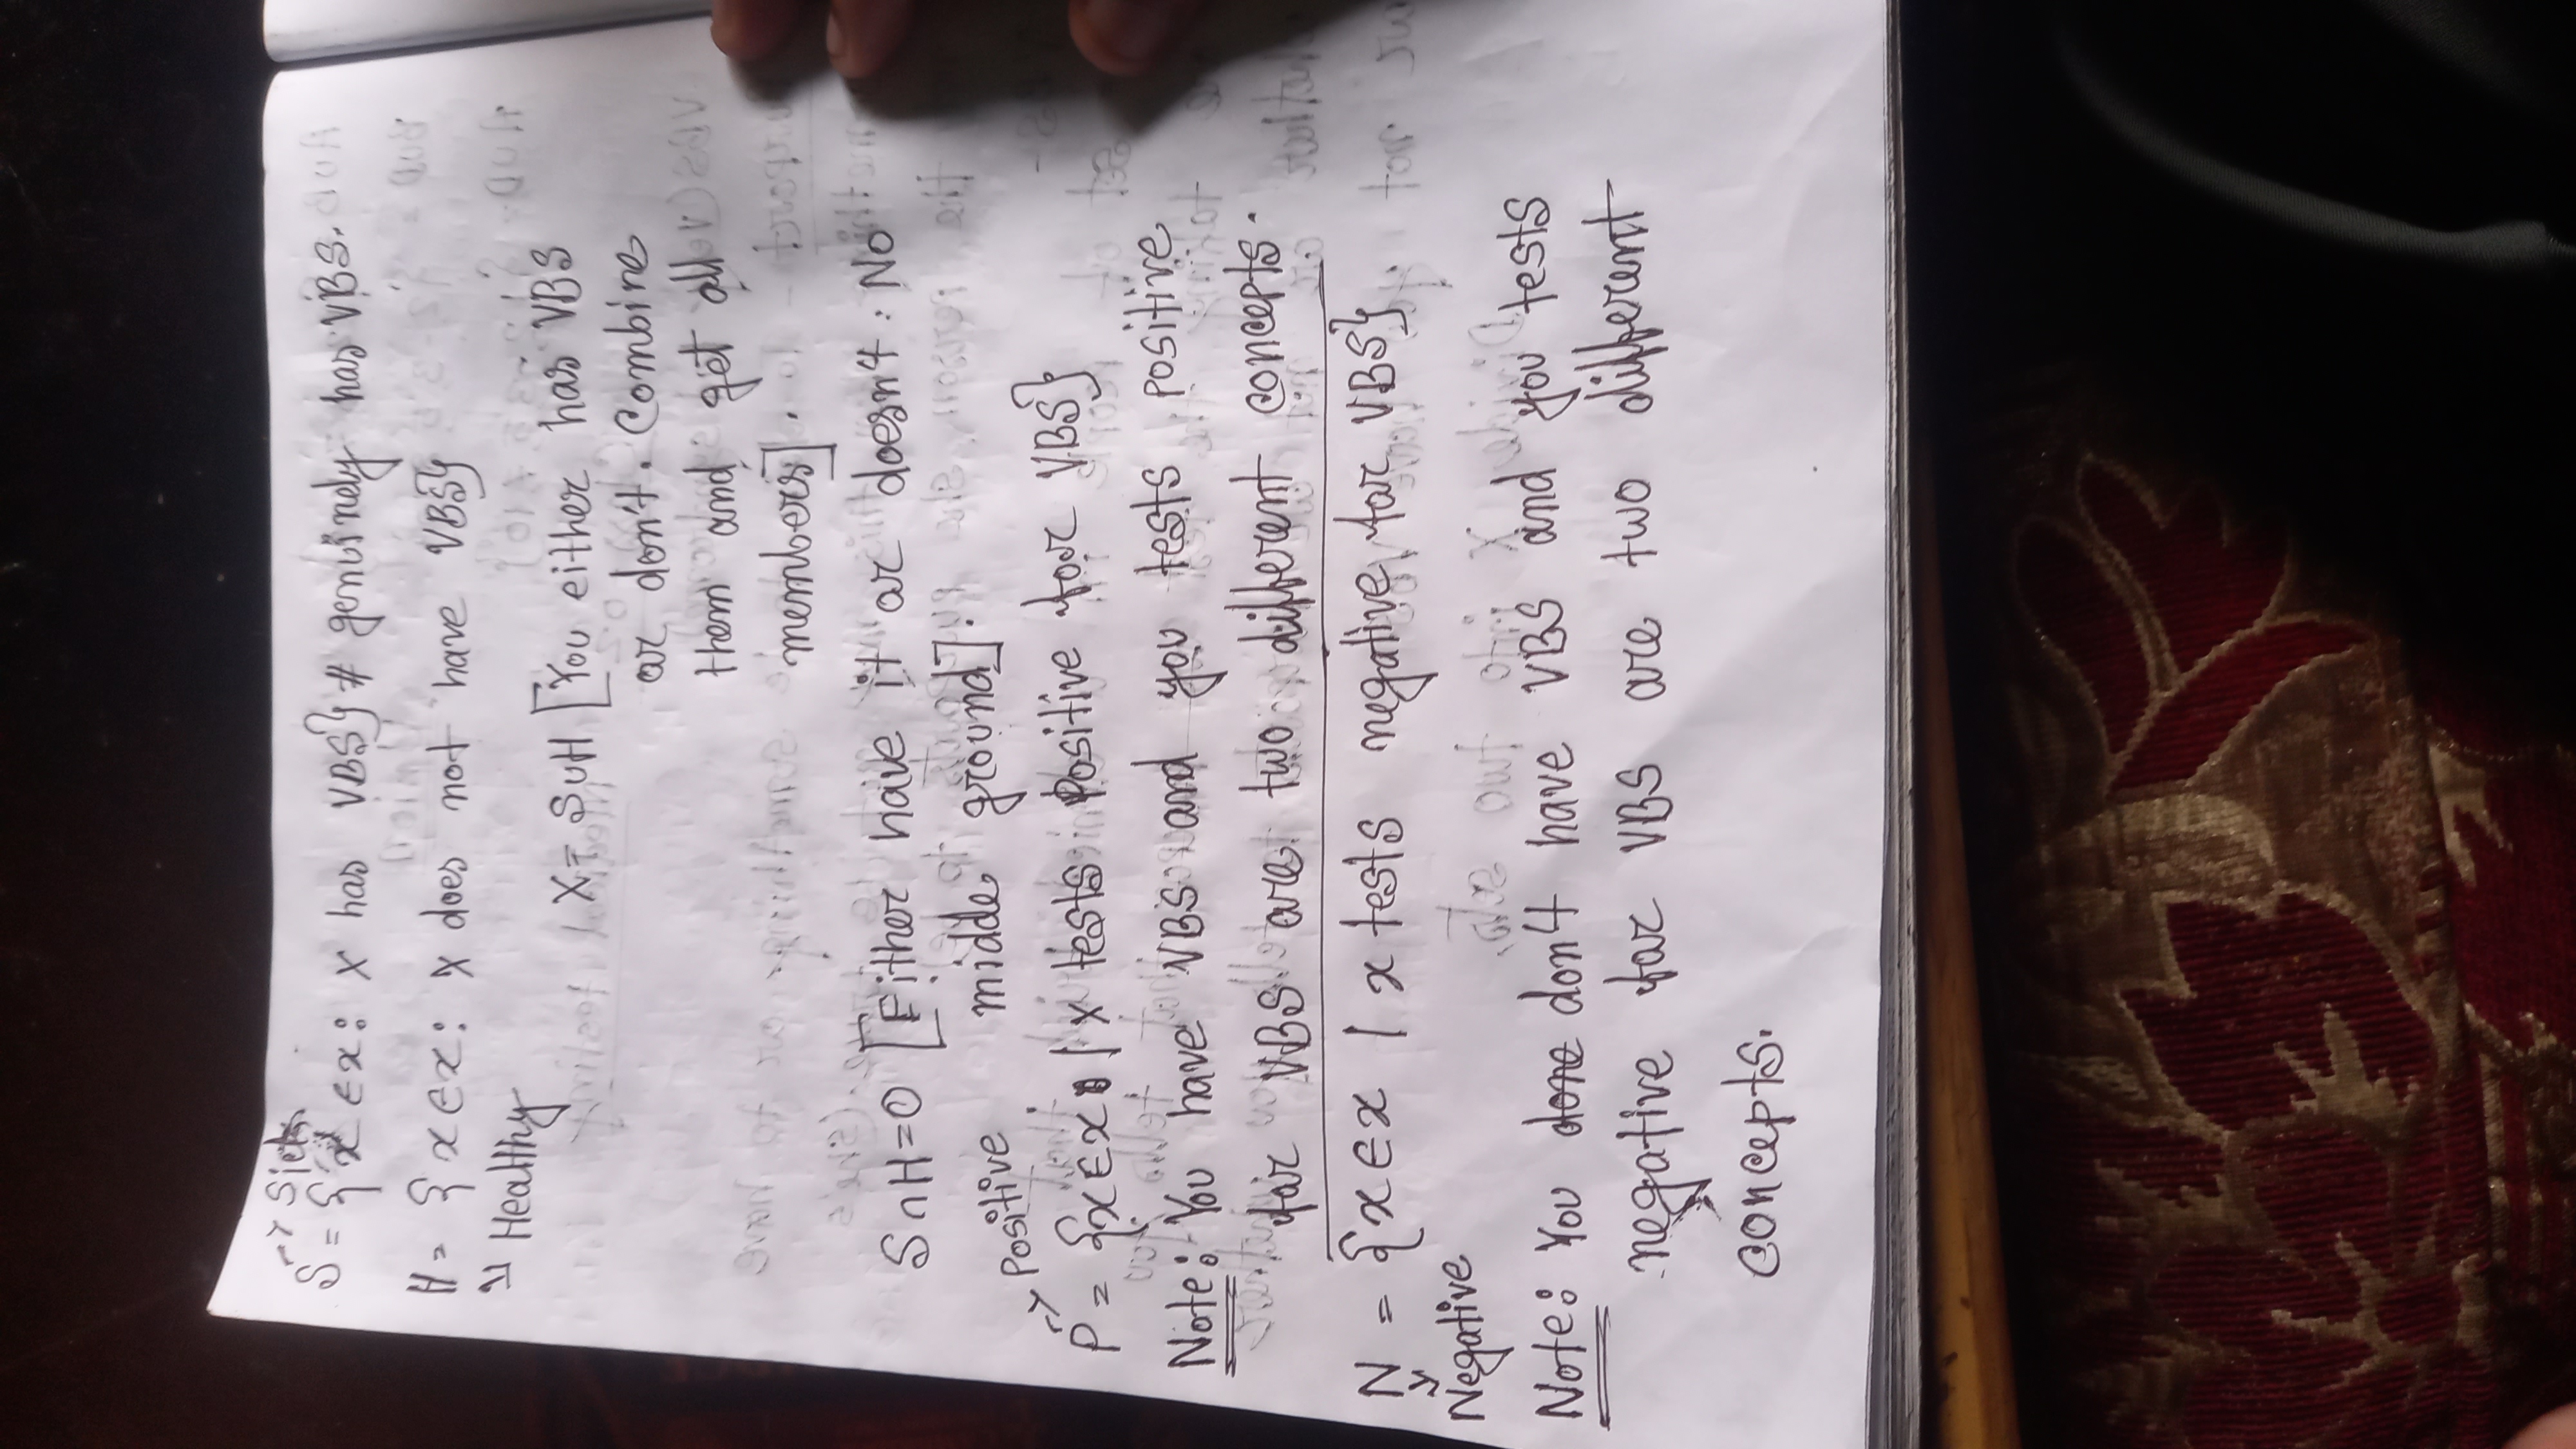 → Sick
S = { x ∈ x: x has VBS} # genuinely has VBS.
H = { x ∈ x: x does not have VBS}
Healthy
X = S∪H [You either has VBS
or don't. Combine
them and get all
members].
S∩H=0 [Either have it or doesn't. No
midde ground].
→ Positive
P = {x∈x | x tests positive for VBS}
Note: You have VBS and you tests positive
for VBS are two different concepts.
N = {x∈x | x tests negative for VBS}
Negative
Note: You done don't have VBS and you tests
negative for VBS are two different
concepts.